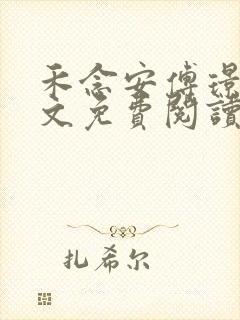 禾念安傅璟
文免費閱讀
扎希尔